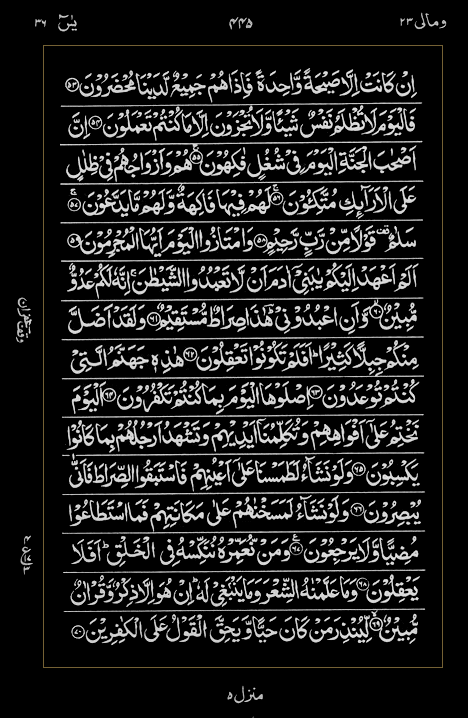 ومالی ۲۳ ۴۴۵ یٰسٓ ۳۶
اِنْ كَانَتْ اِلَّا صَيْحَةً وَّاحِدَةً فَاِذَا هُمْ جَمِيْعٌ لَّدَيْنَا مُحْضَرُوْنَ ۝۵۳
فَالْيَوْمَ لَا تُظْلَمُ نَفْسٌ شَيْـًٔا وَّلَا تُجْزَوْنَ اِلَّا مَا كُنْتُمْ تَعْمَلُوْنَ ۝۵۴ اِنَّ
اَصْحٰبَ الْجَنَّةِ الْيَوْمَ فِيْ شُغُلٍ فٰكِهُوْنَ ۝۵۵ هُمْ وَاَزْوَاجُهُمْ فِيْ ظِلٰلٍ
عَلَى الْاَرَآئِكِ مُتَّكِـُٔوْنَ ۝۵۶ لَهُمْ فِيْهَا فَاكِهَةٌ وَّلَهُمْ مَّا يَدَّعُوْنَ ۝۵۷
سَلٰمٌ قَوْلًا مِّنْ رَّبٍّ رَّحِيْمٍ ۝۵۸ وَامْتَازُوا الْيَوْمَ اَيُّهَا الْمُجْرِمُوْنَ ۝۵۹
اَلَمْ اَعْهَدْ اِلَيْكُمْ يٰبَنِيْٓ اٰدَمَ اَنْ لَّا تَعْبُدُوا الشَّيْطٰنَ اِنَّهٗ لَكُمْ عَدُوٌّ
مُّبِيْنٌ ۝۶۰ وَّاَنِ اعْبُدُوْنِيْ هٰذَا صِرَاطٌ مُّسْتَقِيْمٌ ۝۶۱ وَلَقَدْ اَضَلَّ
مِنْكُمْ جِبِلًّا كَثِيْرًا اَفَلَمْ تَكُوْنُوْا تَعْقِلُوْنَ ۝۶۲ هٰذِهٖ جَهَنَّمُ الَّتِيْ
كُنْتُمْ تُوْعَدُوْنَ ۝۶۳ اِصْلَوْهَا الْيَوْمَ بِمَا كُنْتُمْ تَكْفُرُوْنَ ۝۶۴ اَلْيَوْمَ
نَخْتِمُ عَلٰٓى اَفْوَاهِهِمْ وَتُكَلِّمُنَآ اَيْدِيْهِمْ وَتَشْهَدُ اَرْجُلُهُمْ بِمَا كَانُوْا
يَكْسِبُوْنَ ۝۶۵ وَلَوْ نَشَآءُ لَطَمَسْنَا عَلٰٓى اَعْيُنِهِمْ فَاسْتَبَقُوا الصِّرَاطَ فَاَنّٰى
يُبْصِرُوْنَ ۝۶۶ وَلَوْ نَشَآءُ لَمَسَخْنٰهُمْ عَلٰى مَكَانَتِهِمْ فَمَا اسْتَطَاعُوْا
مُضِيًّا وَّلَا يَرْجِعُوْنَ ۝۶۷ وَمَنْ نُّعَمِّرْهُ نُنَكِّسْهُ فِي الْخَلْقِ اَفَلَا
يَعْقِلُوْنَ ۝۶۸ وَمَا عَلَّمْنٰهُ الشِّعْرَ وَمَا يَنْۢبَغِيْ لَهٗ اِنْ هُوَ اِلَّا ذِكْرٌ وَّقُرْاٰنٌ
مُّبِيْنٌ ۝۶۹ لِّيُنْذِرَ مَنْ كَانَ حَيًّا وَّيَحِقَّ الْقَوْلُ عَلَى الْكٰفِرِيْنَ ۝۷۰
منزل ۵